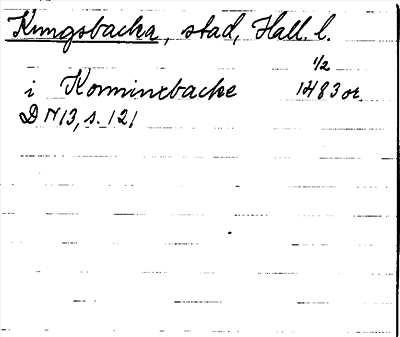 Kungsbacka, stad, Hall. l.
1/2
i Konninxbacke 1483 or.
DN 13, s. 121